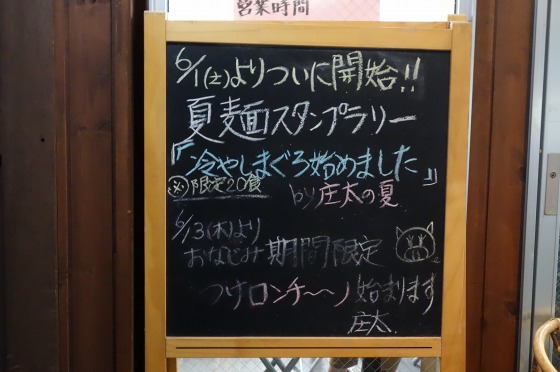 営業時間
6/1(土)よりついに開始!!
夏麺スタンプラリー
「冷やしまぐろ始めました」
※限定20食
by庄太の夏
6/13(木)より
おなじみ期間限定
つけロンチ〜〜ノ始まります
庄太.